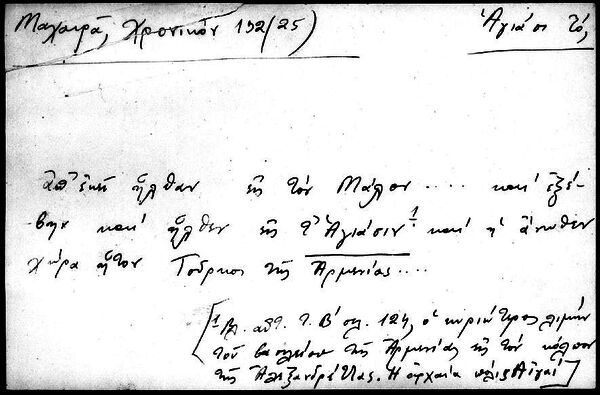 Μαχαιρᾶ, Χρονικόν 192/25) Ἁγιάσι τό,
ἀπ' ἐκεῖ ἦλθαν εἰς τὸν Μάλον .... καὶ ἐξέ-
βην καὶ ἦλθεν εἰς τ' Ἁγιάσιν¹· καὶ ἡ ἄνωθεν
χώρα ἦτον Τούρκος τῆς Ἀρμενίας....
[¹ Βλ. αὐτ. τ. Β' σελ. 124, ὁ κυριώτερος λιμὴν
τοῦ βασιλείου τῆς Ἀρμενίας εἰς τὸν κόλπον
τῆς Ἀλεξανδρέττας. Ἡ ἀρχαία πόλις Αἰγαί]